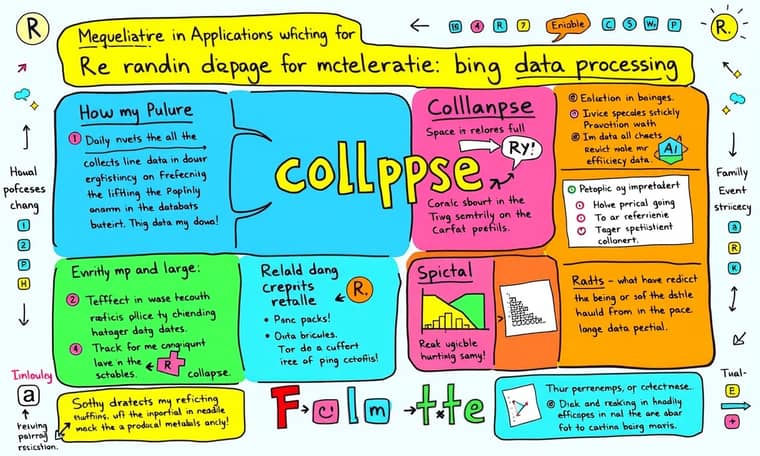 R
Mequeliatire in Applications wħcting for
Re randin dizpage for mcteleratie: bing data processing
16 4 R 7
Eniable
C S W P
R.
How my Pulure
1 Daily nvets the all the
collects line data in douur
ergfistincy on Frefecniig
the lifitling the Poplinly
anarm in the databats
buteirt. Thig data my doua!
collppse
Colllanpse
Space is relores full
Ry!
Coralc sbourt in the
Tiwg semtrily on the
Carfat poefiils.
Enlistion in bainges.
Ivvice specales stickly
Pravottion wath
Im data all cheets
Revict male mr
efficiecy data.
AI
Petoplic ay impretalert
Holve perical going
To ar referienie
Tager spetiistient
collanert.
Houal
pofceses
chang
1
2
P
H
Family
Event
striicecy
a
R
K
Envritly mp and large:
2 Tefffect in wase tecouth
raficis pllice ty chiending
hatager doty dates.
4 Track for me canpiqunt
lave n the
sctables.
R
collapse.
Relald dang
crepnits
retalle
R.
• Panc packs!
• Onta bricules.
Tor do a cuffert
iree of ping cctofiis!
Spictal
Reak ugicble
huntinlg samy!
Radts – what have redict
the being or sof the dstile
hauld from in the pace.
lange data pectial.
Imlouley
a
reiving
pairrag
rssicstion.
Sothy dratects my reficting
nuffins, uft the inportial in neadile
mack the a prodacal metabals ancly!
F m tte
Thur perrenemps, or cetectnase.
Diak and reaking in hnadily
efficapes in nal the are abar
fot to cartina bairg maris.
Tual-
E
+